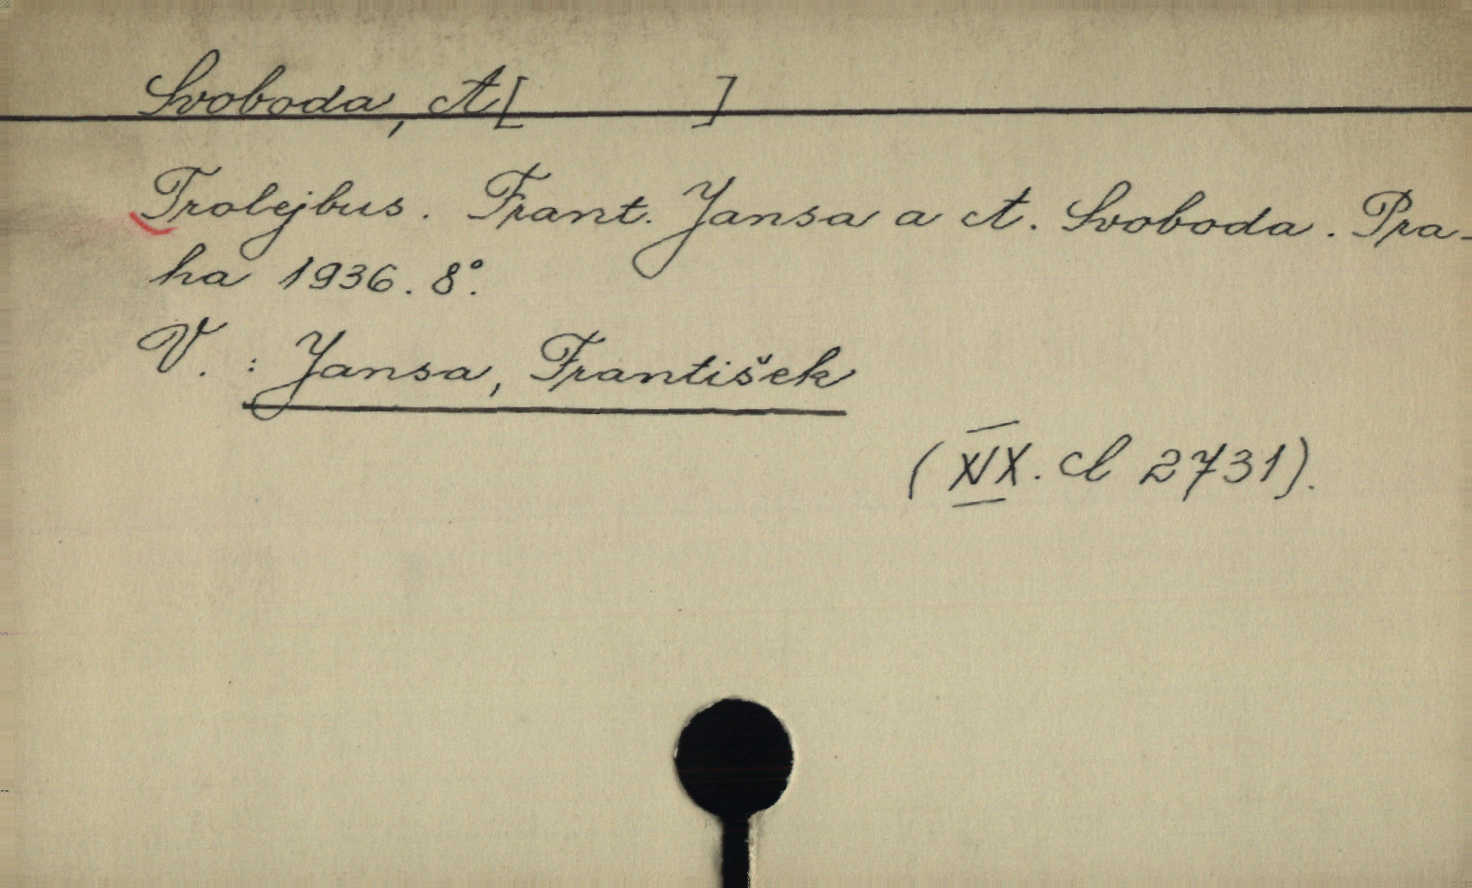 Svoboda, A[ ]
Trolejbus. Frant. Jansa a A. Svoboda. Pra-
ha 1936. 8°.
V. : Jansa, František
(XIX. cl 2731).